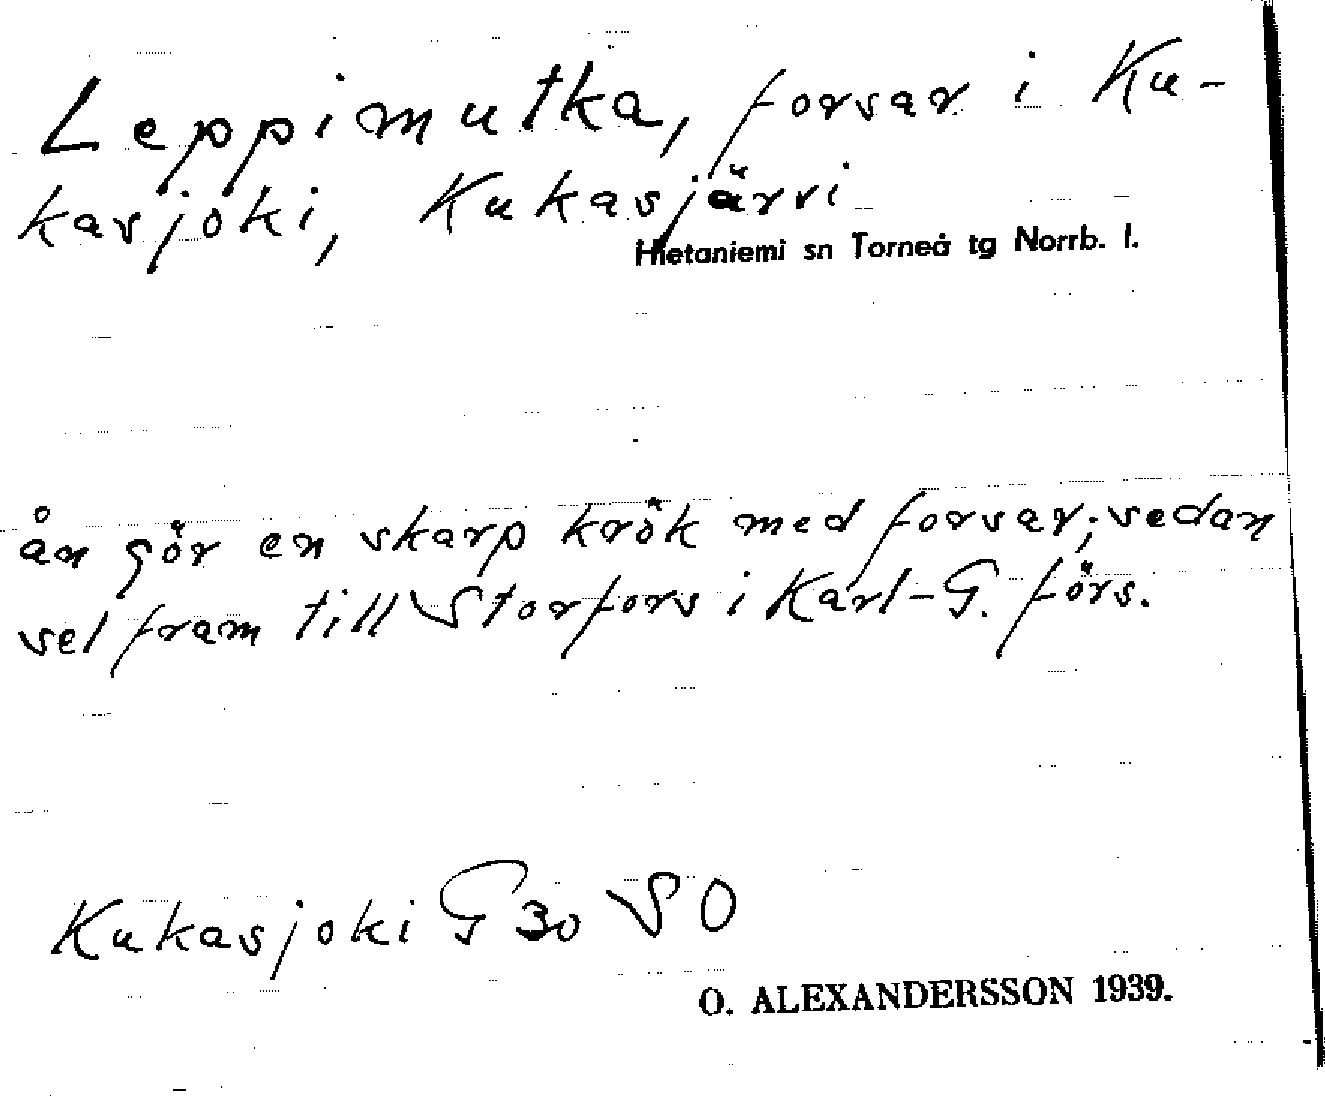 Leppimutka, forsar i Ku-
kasjoki, Kukasjärvi
Hietaniemi sn Torneå tg Norrb. l.
ån gör en skarp krök med forsar; sedan
sel fram till Storfors i Karl-G. förs.
Kukasjoki G 30 SO
O. ALEXANDERSSON 1939.